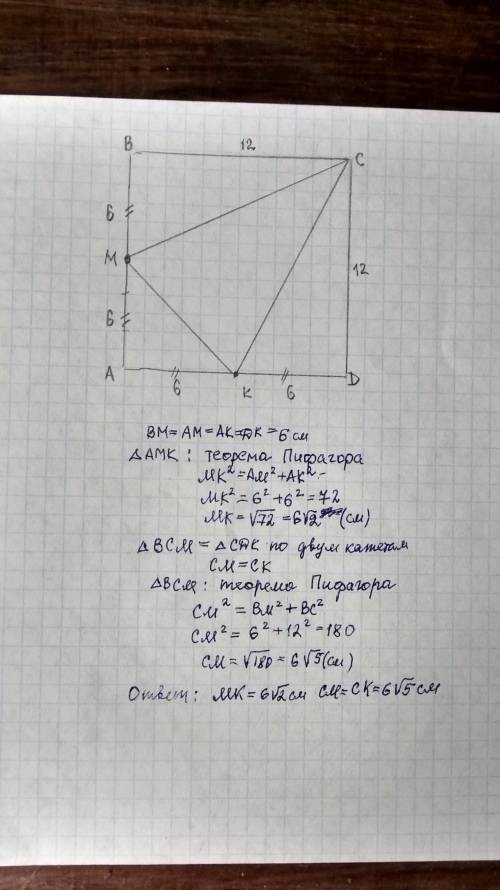 B 12 C
6
M
12
6
A 6 K 6 D
BM = AM = AK = DK = 6 см
△AMK : теорема Пифагора
MK² = AM² + AK²
MK² = 6² + 6² = 72
MK = √72 = 6√2 (см)
△BCM = △CDK по двум катетам
CM = CK
△BCM : теорема Пифагора
CM² = BM² + BC²
CM² = 6² + 12² = 180
CM = √180 = 6√5 (см)
Ответ : MK = 6√2 см CM = CK = 6√5 см